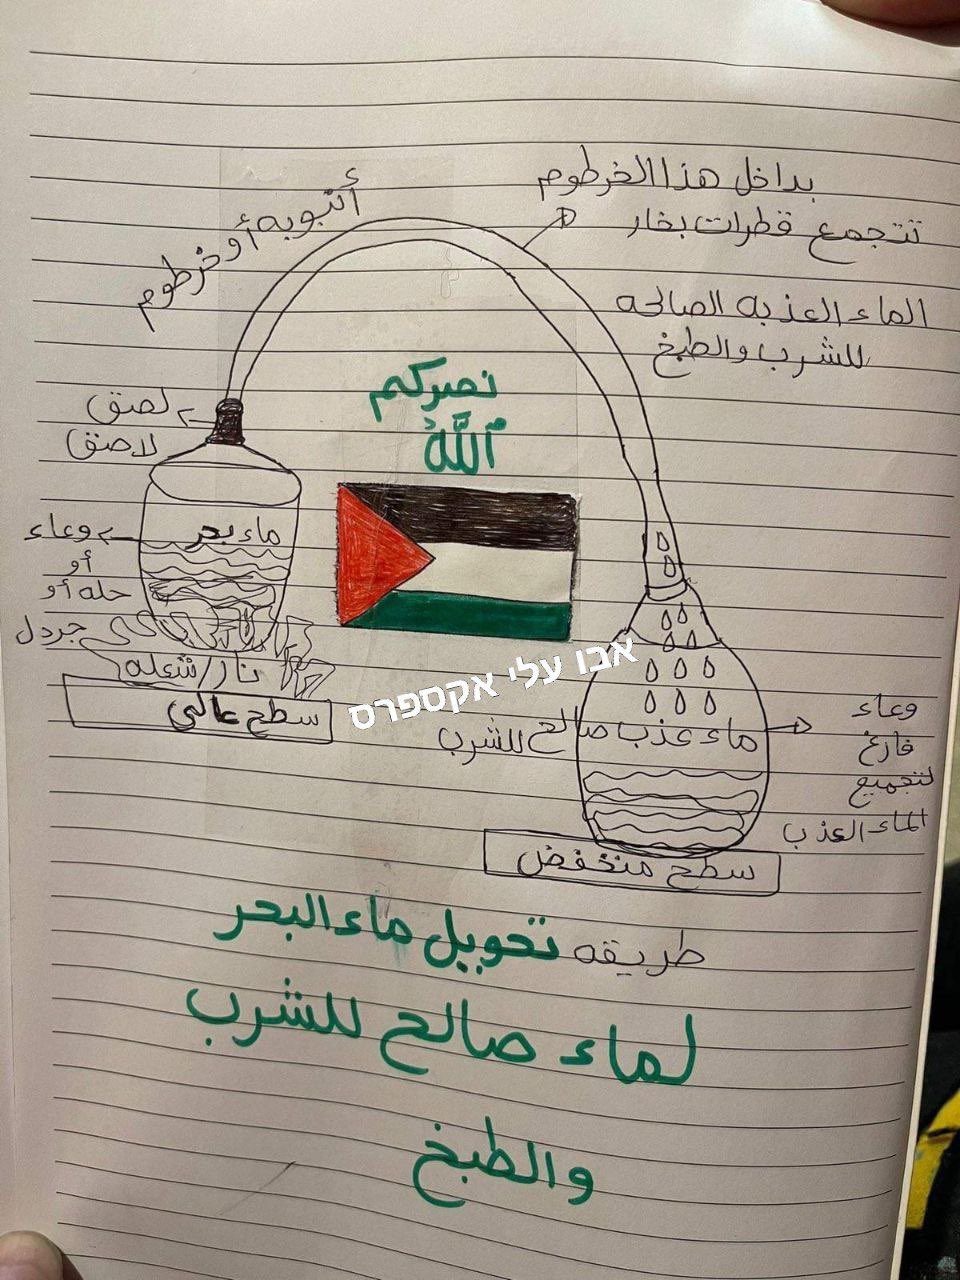 بداخل هذا الخرطوم
تتجمع قطرات بخار
الماء العذبه الصالحه
للشرب والطبخ
أنبوبه أو خرطوم
نصركم
الله
لصق
لاصق
ماء بحر
وعاء
أو
حله أو
جردل
نار/شعله
سطح عالي
אבו עלי אקספרס
ماء عذب صالح للشرب
وعاء
فارغ
لتجميع
الماء العذب
سطح منخفض
طريقه تحويل ماء البحر
لماء صالح للشرب
والطبخ